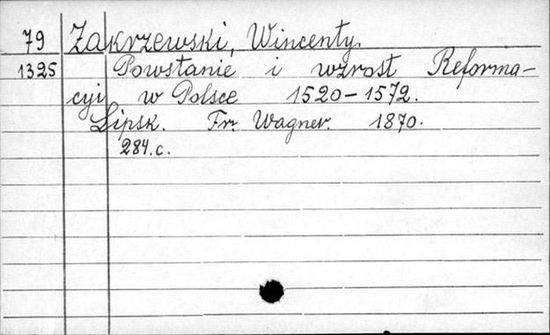 79 Zakrzewski, Wincenty.
1325 Powstanie i wzrost Reforma-
cyi w Polsce 1520-1572.
Lipsk. Fr. Wagner. 1870.
284.c.